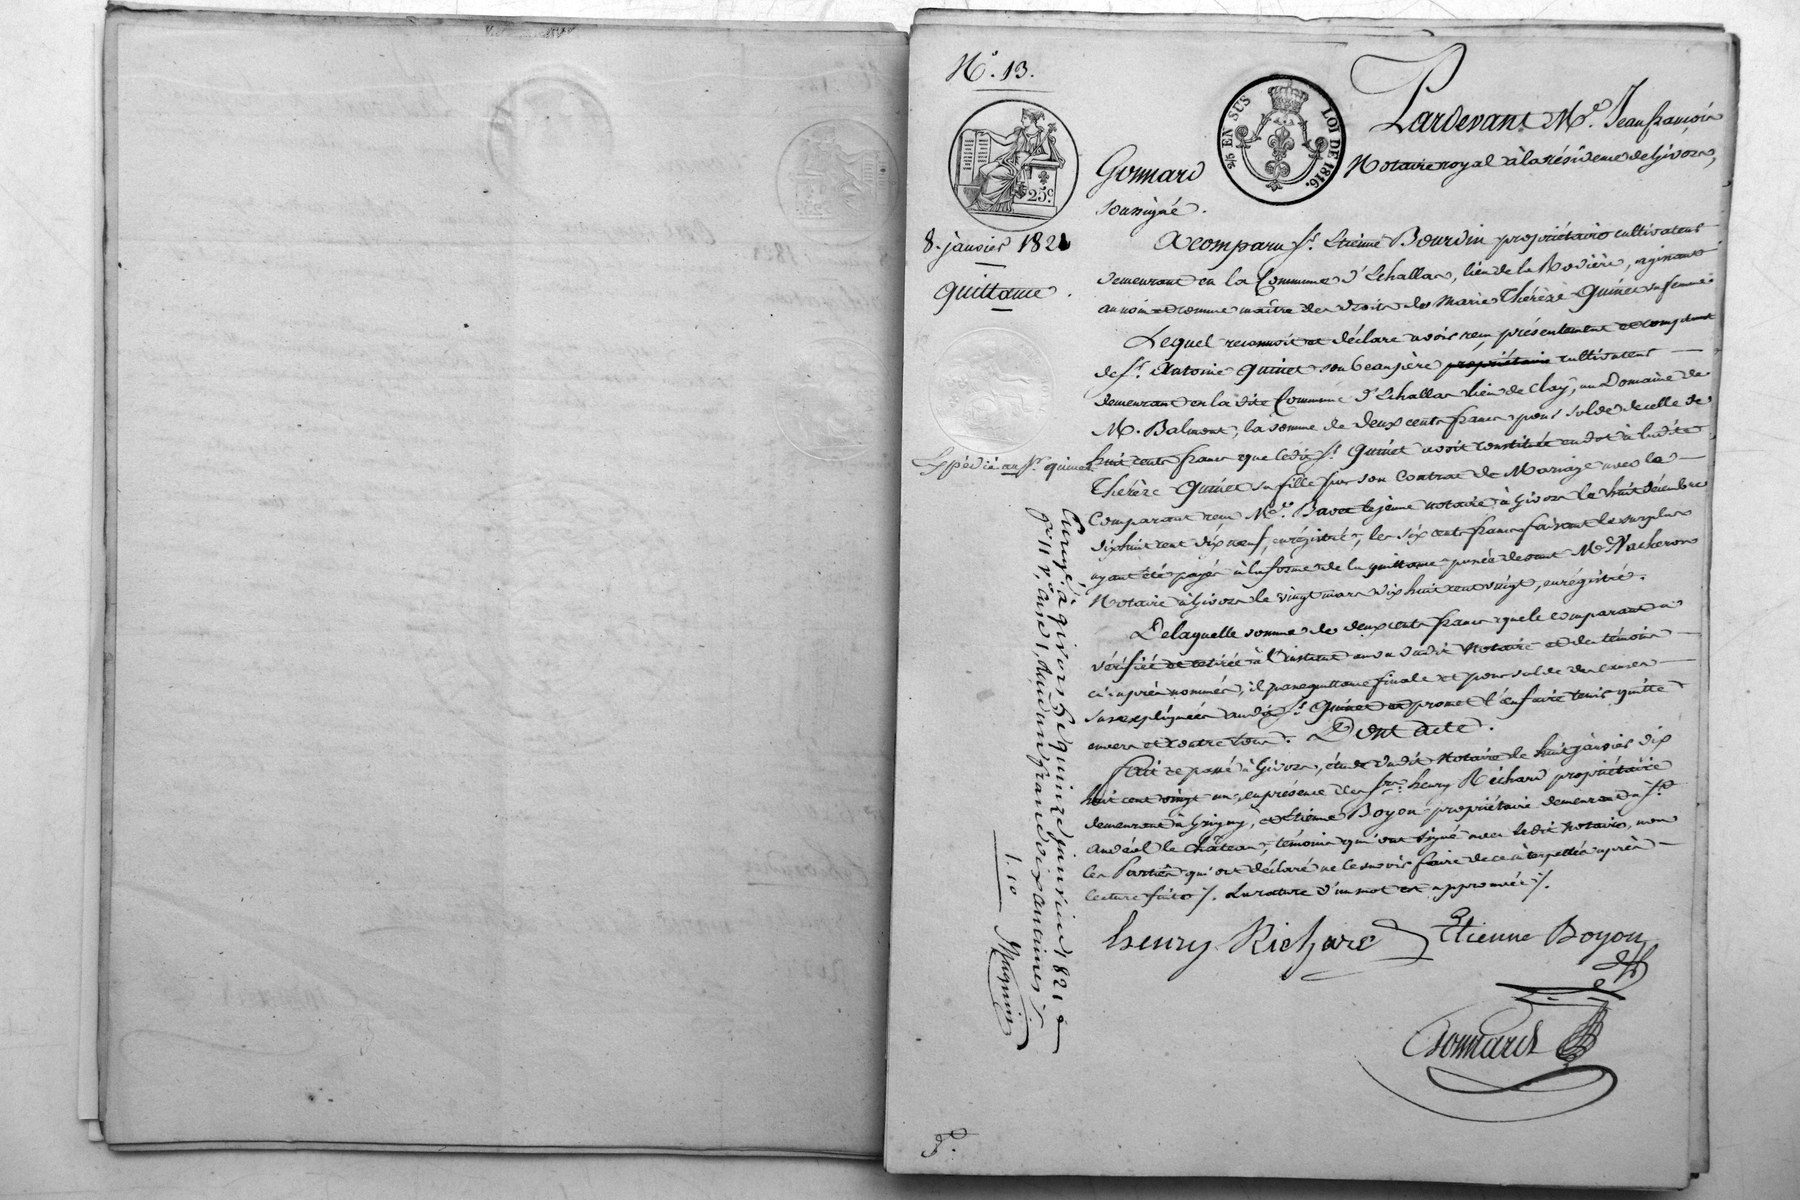 N.° 13.
25.c
8. janvier 1821
Quittance.
Expédié au Sr. quinet
Enregé. à givors le quinze janvier 1821
fo. 11, vo. case 1, reçu un franc dix centimes
1.10
¾ EN SUS LOI DE 1816.
Pardevant Me. Jean françois
Gonnard Notaire royal à la résidence de Givors,
soussigné.
A comparu Sr. Etienne Bourdin propriétaire cultivateur
demeurant en la Commune d'Echallas, lieu de la Rodière, agissant
au nom et comme maître des droits de Marie Thérèze Quinet sa femme
Lequel reconnoit et déclare avoir reçu présentement et comptant
de Sr. Antoine Quinet son beaupère propriétaire cultivateur
demeurant en la dite Commune d'Echallas lieu de Clay, au Domaine de
M. Balmont, la somme de deux cents francs pour solde de celle de
huit cents francs que ledit Sr. Quinet avoit constituée en dot à ladite
Thérèze Quinet sa fille par son Contrat de Mariage avec le
Comparant reçu Me. Bavet lejeune notaire à Givors le huit décembre
dix huit cent dix neuf, enrégistré, les six cents francs faisant le surplus
ayant été payés à la forme de la quittance passée devant Me. Vacheron
Notaire à Givors le vingt mars dix huit cent vingt, enrégistré.
De laquelle somme de deux cents francs que le comparant a
vérifiée et retirée à l'instant au vu dudit Notaire et des témoins
ci après nommés, il passe quittance finale et pour solde des causes
sus expliquées audit Sr. Quinet et promet l'en faire tenir quitte
envers et contre tous. Dont acte.
Fait et passé à Givors, étude dudit Notaire le huit janvier dix
huit cent vingt un, en présence des Srs. henry Richard propriétaire
demeurant à Grigny, et Etienne Boyon propriétaire demeurant à St.
andéol le Château, témoins qui ont signé avec ledit Notaire, non
les Parties qui ont déclaré ne le savoir faire de ce interpellées après
lecture faite ./. La rature d'un mot est approuvée ./.
henry Richard Etienne Boyon
Gonnard